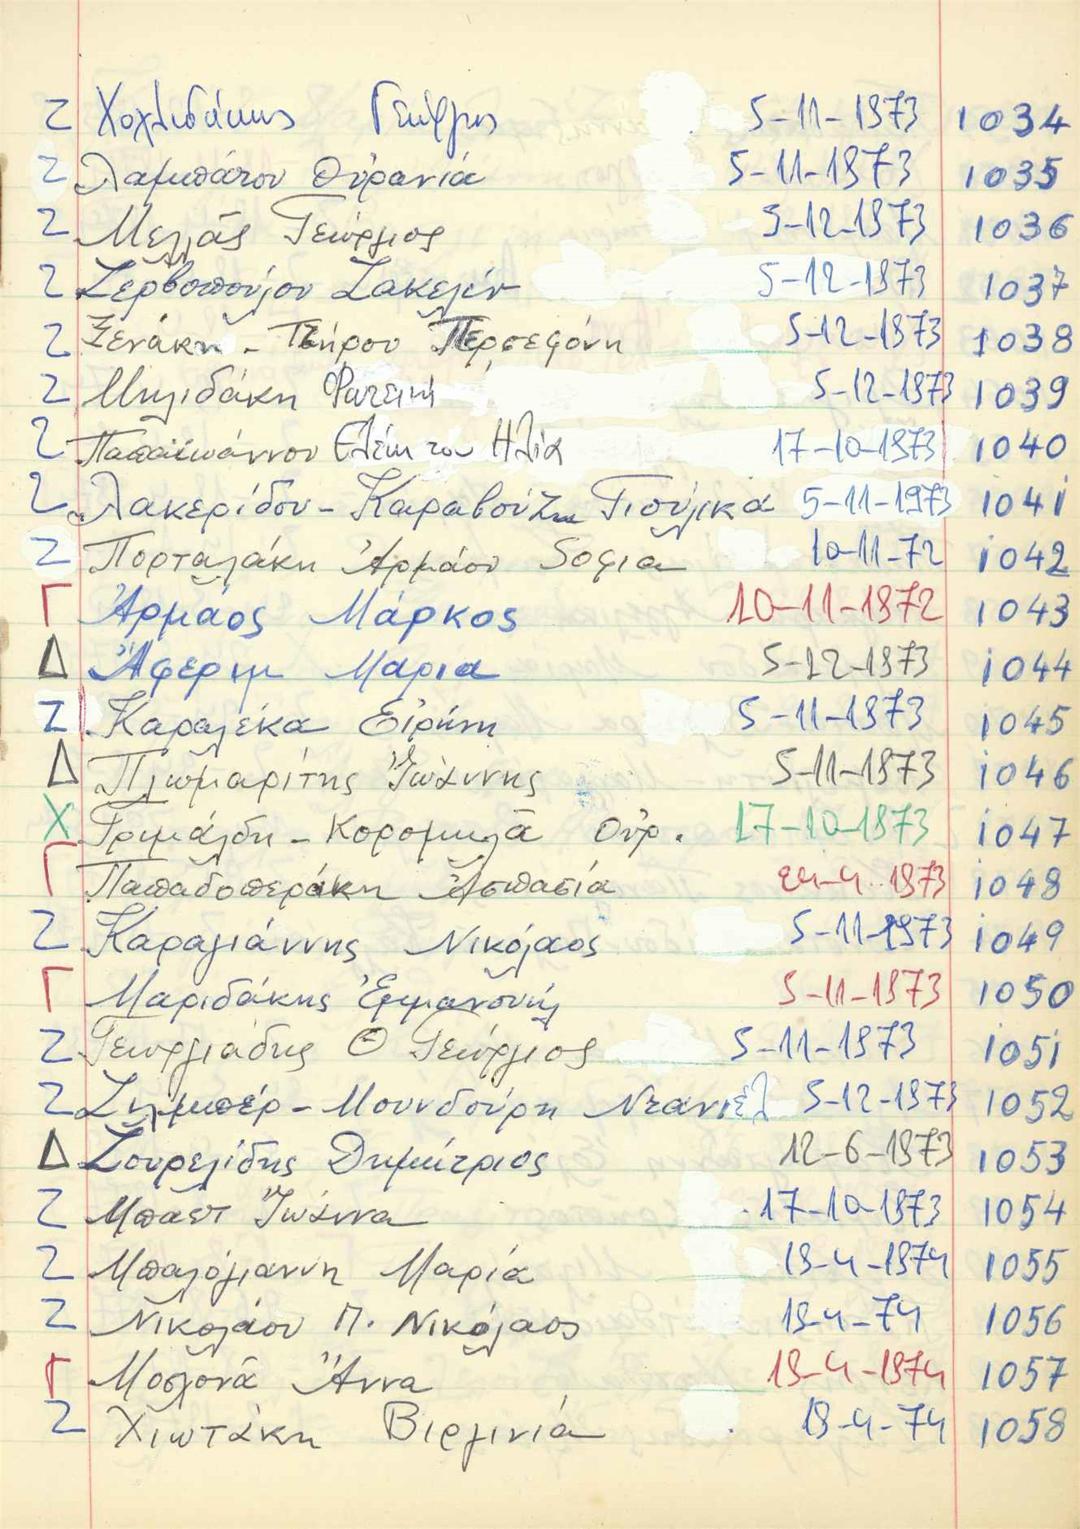 Ζ Γεώργιος 5-11-1973 1034
Ζ Λαμπάτου Οὐρανιά 5-11-1973 1035
Ζ Μελᾶς Γεώργιος 5-12-1973 1036
Ζ Ζερβοπούλου Ζακελίν 5-12-1973 1037
Ζ Ξενάκη - Πέρσεφόνη 5-12-1973 1038
Ζ Μηλιδάκη Φωτεινή 5-12-1973 1039
Ζ Παπαϊωάννου Ελένη του Ηλία 17-10-1973 1040
Ζ Λακερίδου - Γιούλικα 5-11-1973 1041
Ζ Πορταλάκη Ἀρμάου Sοφια 10-11-72 1042
Γ Ἀρμάος Μάρκος 10-11-1972 1043
Δ Μαρια 5-12-1973 1044
Ζ Καραλέκα Εἰρήνη 5-11-1973 1045
Δ Πλωμαρίτης Ἰωάννης 5-11-1973 1046
Χ Γριμάλδη - Κορομηλᾶ Οὐρ. 17-10-1973 1047
Γ Παπαδοπεράκη Ἀσπασία 1973 1048
Ζ Καραγιάννης Νικόλαος 5-11-1973 1049
Γ Μαριδάκης Ἐμμανουήλ 5-11-1973 1050
Ζ Γεωργιάδης Θ Γεώργιος 5-11-1973 1051
Ζ Ζιλμπέρ - Μουνδούρη 5-12-1973 1052
Δ Ζουρελίδης Δημήτριος 12-6-1973 1053
Ζ Μπαστ Ἰωάννα 17-10-1973 1054
Ζ Μπαλόγιαννη Μαρία 19-4-1974 1055
Ζ Νικολάου Π. Νικόλαος 19-4-74 1056
Γ Μοσλονᾶ Ἄννα 19-4-1974 1057
Ζ Χιωτάκη Βιργινιά 19-4-74 1058